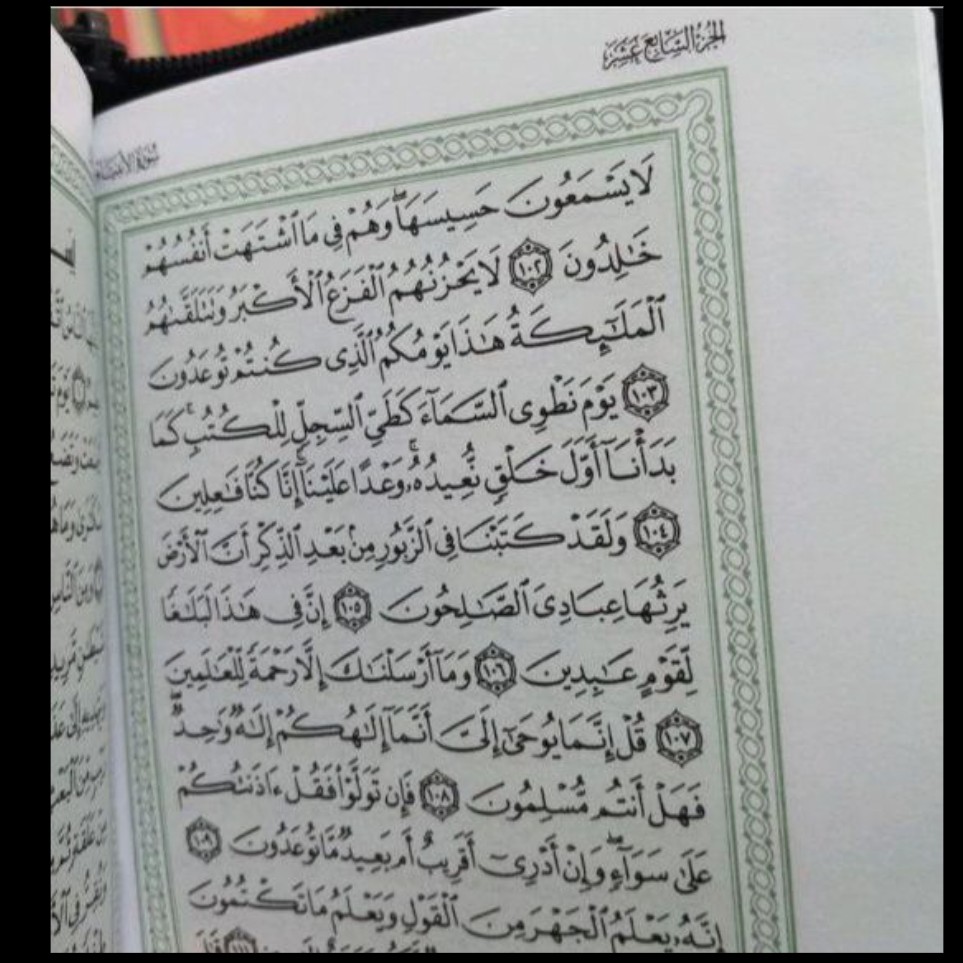 الجزء السابع عشر
سورة الأنبياء
لَا يَسْمَعُونَ حَسِيسَهَا ۖ وَهُمْ فِي مَا ٱشْتَهَتْ أَنفُسُهُمْ
خَـٰلِدُونَ ١٠٢ لَا يَحْزُنُهُمُ ٱلْفَزَعُ ٱلْأَكْبَرُ وَتَتَلَقَّىٰهُمُ
ٱلْمَلَـٰٓئِكَةُ هَـٰذَا يَوْمُكُمُ ٱلَّذِى كُنتُمْ تُوعَدُونَ
١٠٣ يَوْمَ نَطْوِى ٱلسَّمَآءَ كَطَىِّ ٱلسِّجِلِّ لِلْكُتُبِ ۚ كَمَا
بَدَأْنَآ أَوَّلَ خَلْقٍ نُّعِيدُهُۥ ۚ وَعْدًا عَلَيْنَآ ۚ إِنَّا كُنَّا فَـٰعِلِينَ
١٠٤ وَلَقَدْ كَتَبْنَا فِى ٱلزَّبُورِ مِنۢ بَعْدِ ٱلذِّكْرِ أَنَّ ٱلْأَرْضَ
يَرِثُهَا عِبَادِىَ ٱلصَّـٰلِحُونَ ١٠٥ إِنَّ فِى هَـٰذَا لَبَلَـٰغًا
لِّقَوْمٍ عَـٰبِدِينَ ١٠٦ وَمَآ أَرْسَلْنَـٰكَ إِلَّا رَحْمَةً لِّلْعَـٰلَمِينَ
١٠٧ قُلْ إِنَّمَا يُوحَىٰٓ إِلَىَّ أَنَّمَآ إِلَـٰهُكُمْ إِلَـٰهٌ وَٰحِدٌ ۖ
فَهَلْ أَنتُم مُّسْلِمُونَ ١٠٨ فَإِن تَوَلَّوْا۟ فَقُلْ ءَاذَنتُكُمْ
عَلَىٰ سَوَآءٍ ۖ وَإِنْ أَدْرِىٓ أَقَرِيبٌ أَم بَعِيدٌ مَّا تُوعَدُونَ ١٠٩
إِنَّهُۥ يَعْلَمُ ٱلْجَهْرَ مِنَ ٱلْقَوْلِ وَيَعْلَمُ مَا تَكْتُمُونَ